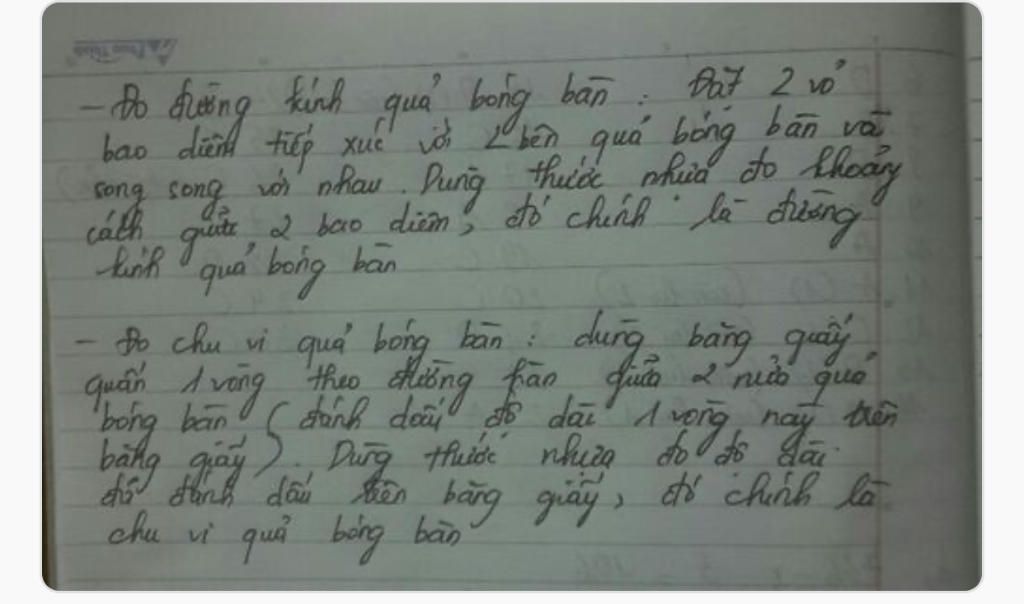 - Đo đường kính quả bóng bàn : Đặt 2 vỏ
bao diêm tiếp xúc với 2 bên quả bóng bàn và
song song với nhau. Dùng thước nhựa đo khoảng
cách giữa 2 bao diêm, đó chính là đường
kính quả bóng bàn
- Đo chu vi quả bóng bàn : dùng băng giấy
quấn 1 vòng theo đường hàn giữa 2 nửa quả
bóng bàn (đánh dấu độ dài 1 vòng này trên
băng giấy). Dùng thước nhựa đo độ dài
đã đánh dấu trên băng giấy, đó chính là
chu vi quả bóng bàn